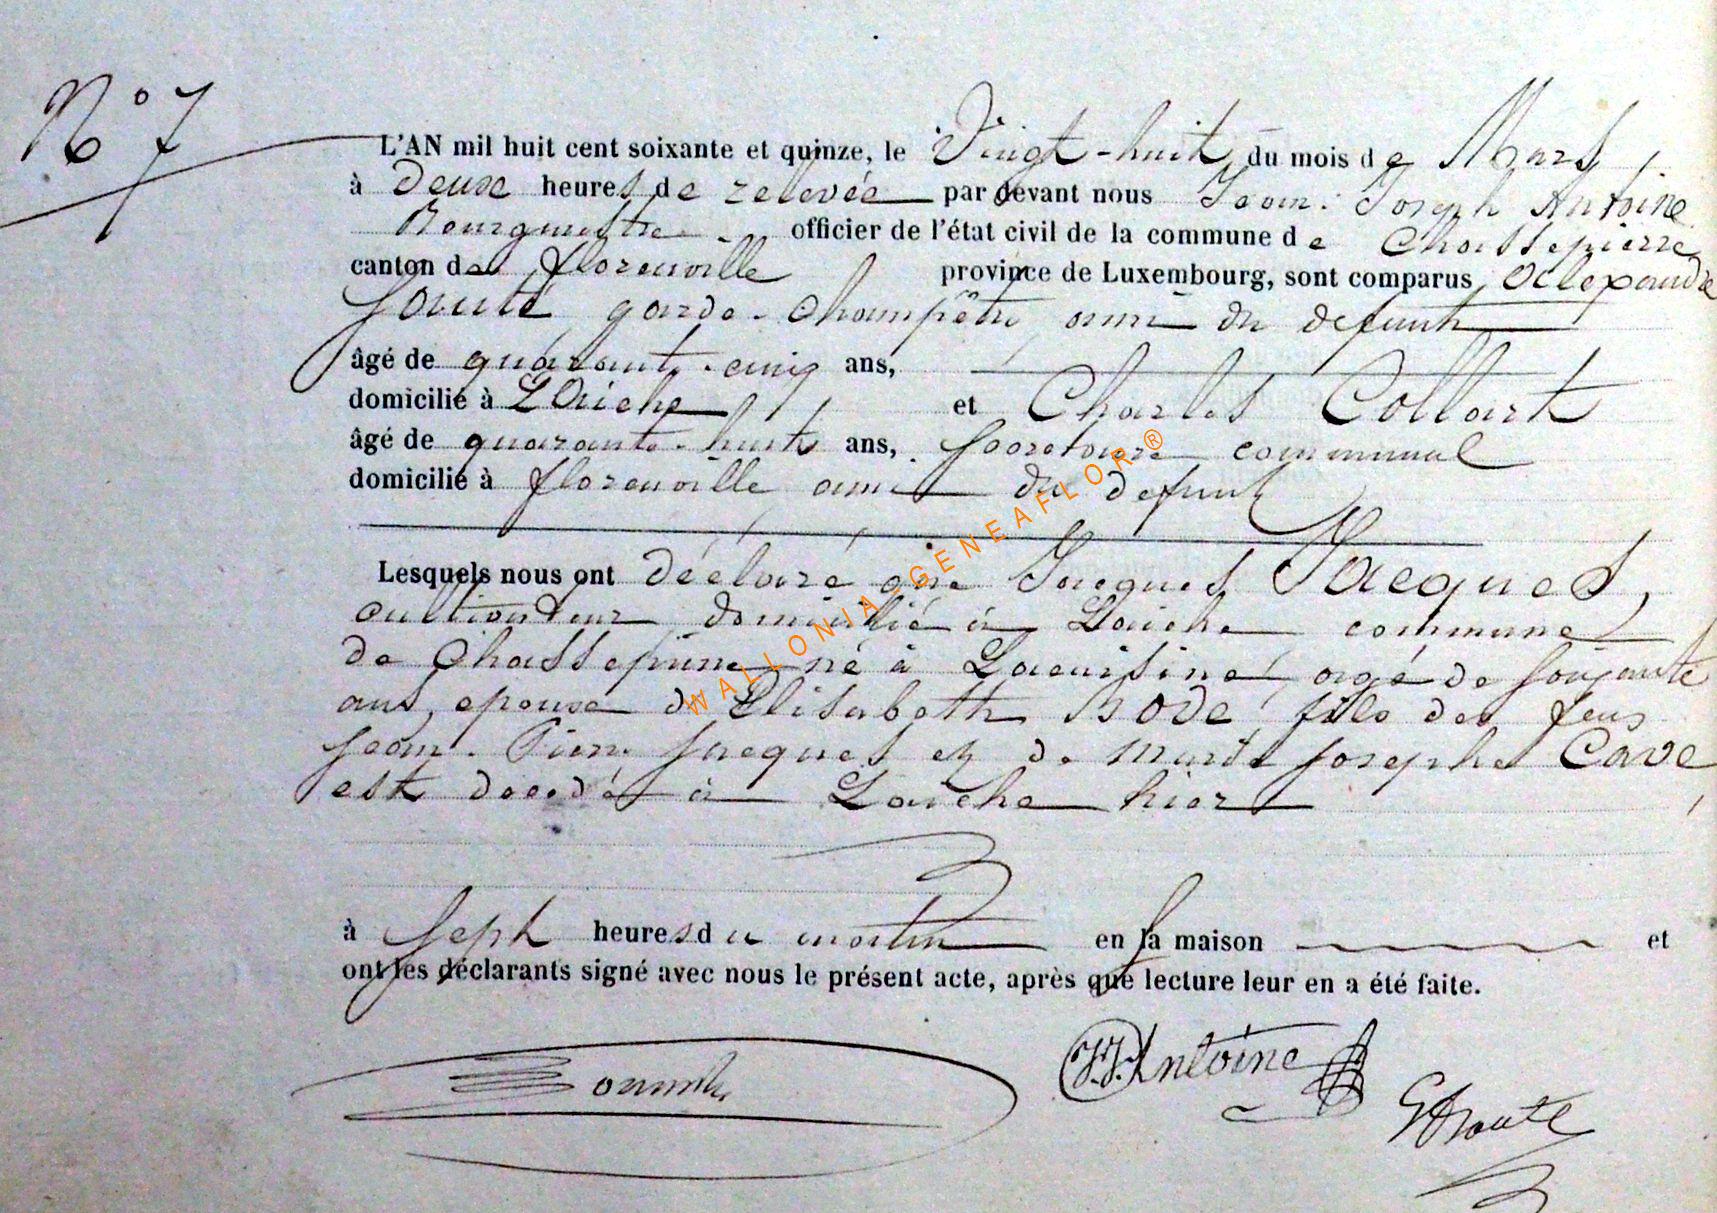 N° 7
L'AN mil huit cent soixante et quinze, le Vingt-huit du mois de Mars,
à deux heures de relevée par devant nous Jean-Joseph Antoine
Bourgmestre officier de l'état civil de la commune de Chassepierre
canton de florenville province de Luxembourg, sont comparus
garde-champêtre, ami du defunt
âgé de quarante-cinq ans,
domicilié à Laiche et Charles Collart
âgé de quarante-huit ans, secretaire communal
domicilié à florenville ami du defunt
Lesquels nous ont déclaré que Jacques Jacques,
cultivateur domicilié à Laiche commune
de Chassepierre né à Lacuisine, agé de soixante
ans, epoux d'Elisabeth BODE, fils des feus
Jean-Pierre Jacques et de Marie Josephe Cave
est decedé à Laiche hier
à sept heures du matin en sa maison et
ont les déclarants signé avec nous le présent acte, après que lecture leur en a été faite.
J.J. Antoine
WALLONIA GENEAFLOR ®